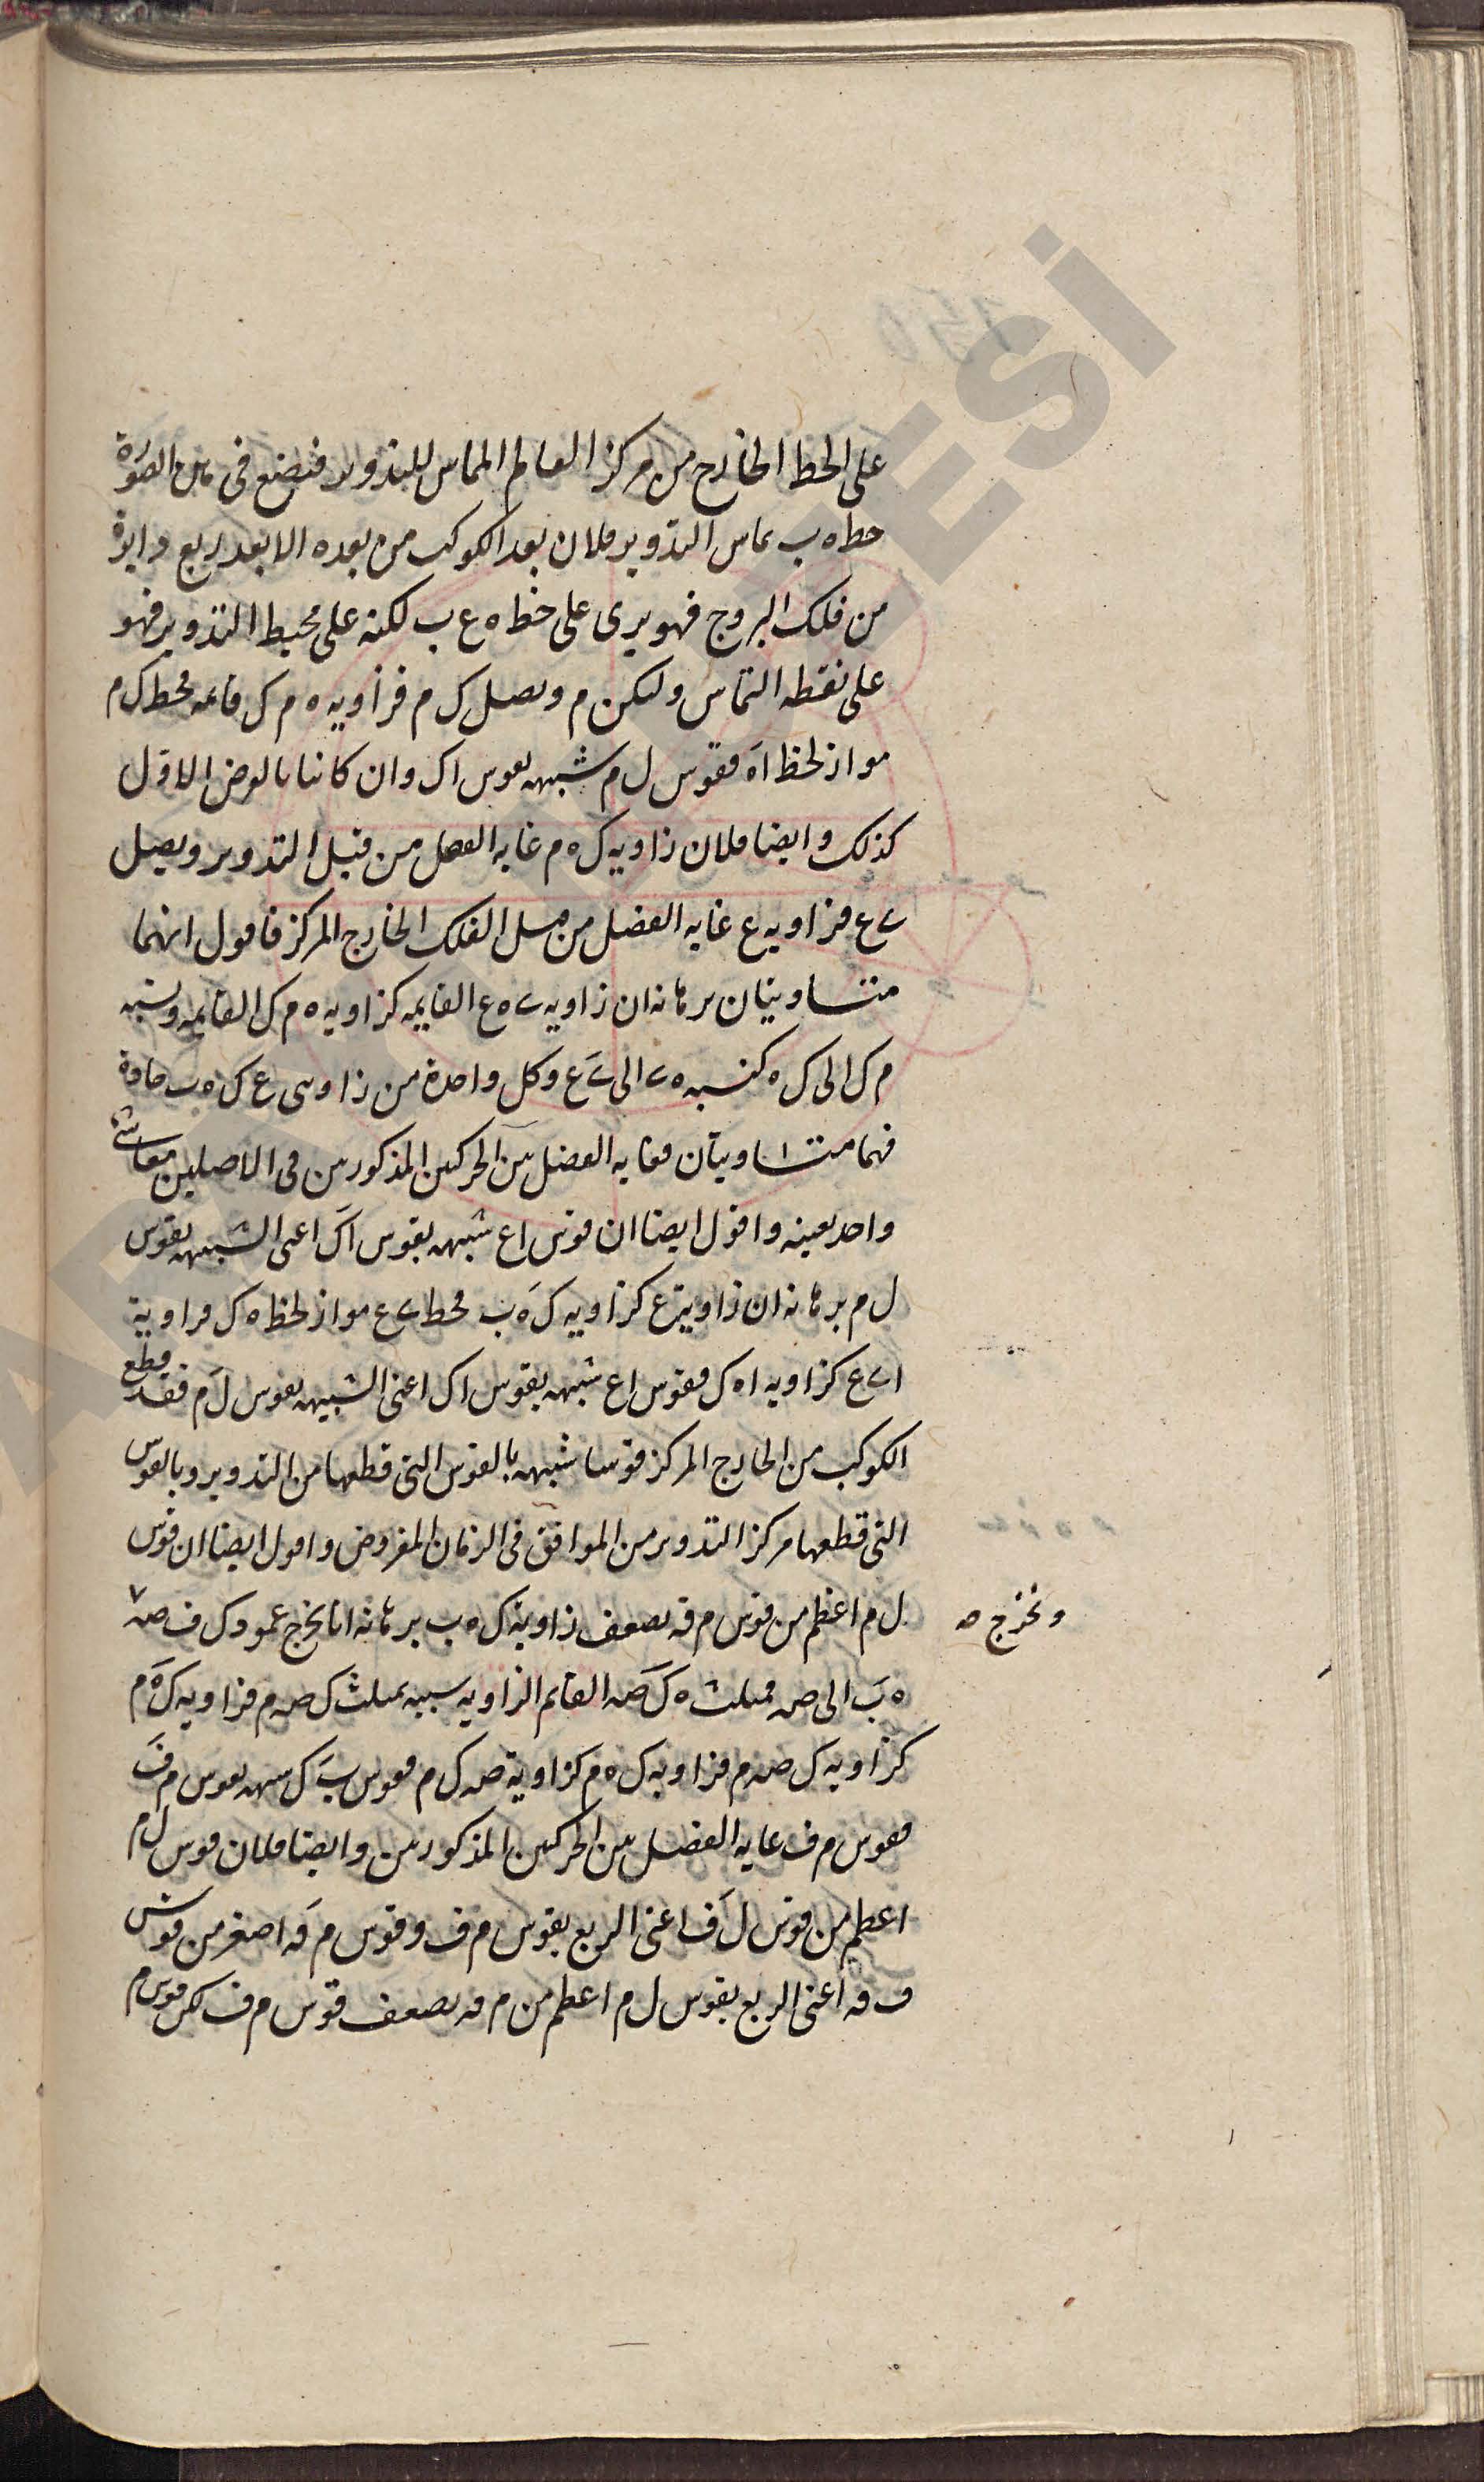 على الخط الخارج من مركز العالم المماس للتدوير فنضع في هذه الصورة
خط ه ب يماس التدوير فلان بعد الكوكب من بعده الابعد ربع دايرة
من فلك البروج فهو يرى على خط ه ع ب لكنه على محيط التدوير فهو
على نقطه التماس وليكن م ونصل ك م فزاويه ه م ك قايمه فخط ك م
مواز لخط اه فقوس ل م شبيهه بقوس اك وان كانتا بالعرض الاول
كذلك وايضا فلان زاويه ك ه م غايه الفضل من قبل التدوير ويصل
ح ع فزاويه ع غايه الفضل من قبل الفلك الخارج المركز فاقول انهما
متساويتان برهانه ان زاويه ح ه ع القايمه كزاويه ه م ك القايمه ونسبه
م ك الى ك ه كنسبه ه ح الى ح ع وكل واحدة من زاويتى ع ك ه ب حادة
فهما متساويتان فغايه الفضل بين الحركتين المذكورتين في الاصلين معا شى
واحد بعينه واقول ايضا ان قوس اع شبيهه بقوس اك اعنى الشبيهه بقوس
ل م برهانه ان زاوية ع كزاويه ك ه ب فخط ح ع مواز لخط ه ك فزاوية
ا ح ع كزاويه ا ه ك فقوس اع شبيهه بقوس اك اعنى الشبيهه بقوس ل م فقد قطع
الكوكب من الخارج المركز قوسا شبيهه بالقوس التى قطعها من التدوير وبالقوس
التى قطعها مركز التدوير من الموافق في الزمان المفروض واقول ايضا ان قوس
ل م اعظم من قوس م ق بضعف زاوية ك ه ب برهانه انا نخرج عمود ك ف ص
ونخرج ص
ه ب الى ص فمثلث ه ك ص القايم الزاويه شبيه بمثلث ك ص م فزاويه ك ه م
كزاويه ك ص م فزاويه ك ه م كزاوية ص ك م فقوس ب ك شبيهه بقوس م ف
فقوس م ف غايه الفضل بين الحركتين المذكورتين وايضا فلان قوس ل م
اعظم من قوس ل ف اعنى الربع بقوس م ف وقوس م ق اصغر من قوس
ف ق اعنى الربع بقوس ل م اعظم من م ق بضعف قوس م ف لكن قوس م